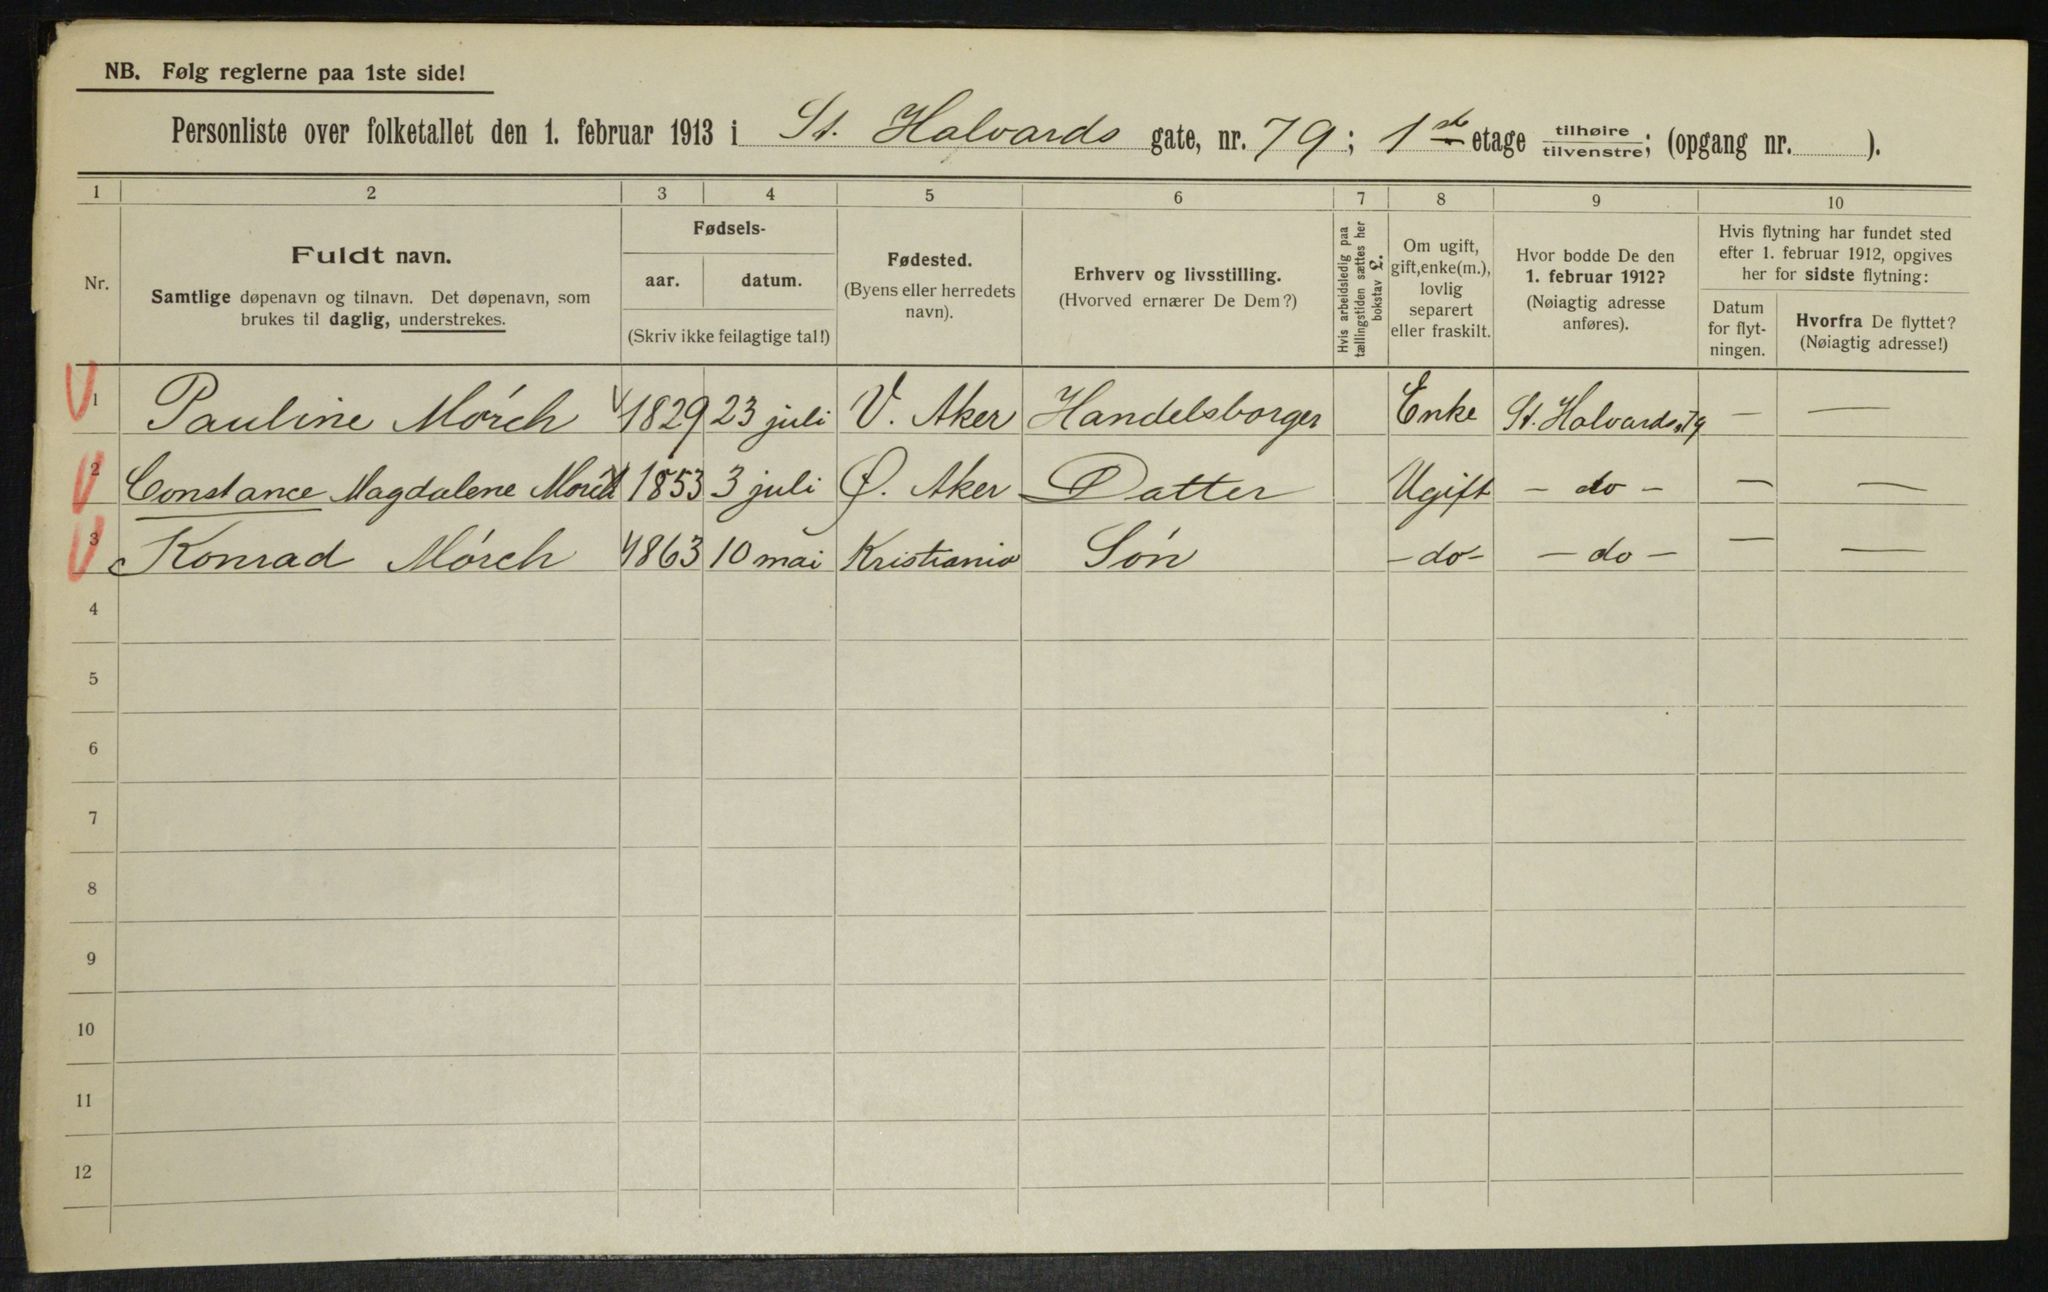 NB. Følg reglerne paa 1ste side!
Personliste over folketallet den 1. februar 1913 i St. Halvards gate, nr. 79; 1ste etage tilhøire/tilvenstre; (opgang nr. ).
1 2 3 4 5 6 7 8 9 10
Nr.
Fuldt navn.
Samtlige døpenavn og tilnavn. Det døpenavn, som
brukes til daglig, understrekes.
Fødsels-
aar. datum.
(Skriv ikke feilagtige tal!)
Fødested.
(Byens eller herredets
navn).
Erhverv og livsstilling.
(Hvorved ernærer De Dem?)
Hvis arbeidsledig paa
tællingstiden sættes her
bokstav L.
Om ugift,
gift, enke(m.),
lovlig
separert
eller fraskilt.
Hvor bodde De den
1. februar 1912?
(Nøiagtig adresse
anføres).
Hvis flytning har fundet sted
efter 1. februar 1912, opgives
her for sidste flytning:
Datum
for flyt-
ningen.
Hvorfra De flyttet?
(Nøiagtig adresse!)
1 Pauline Mörch 1829 23 juli V. Aker Handelsborger Enke St. Halvardsg 79 — —
2 Constance Magdalene Mörch 1853 3 juli Ø. Aker Datter Ugift - do - — —
3 Konrad Mörch 1863 10 mai Kristiania Sön - do - - do - — —
4
5
6
7
8
9
10
11
12